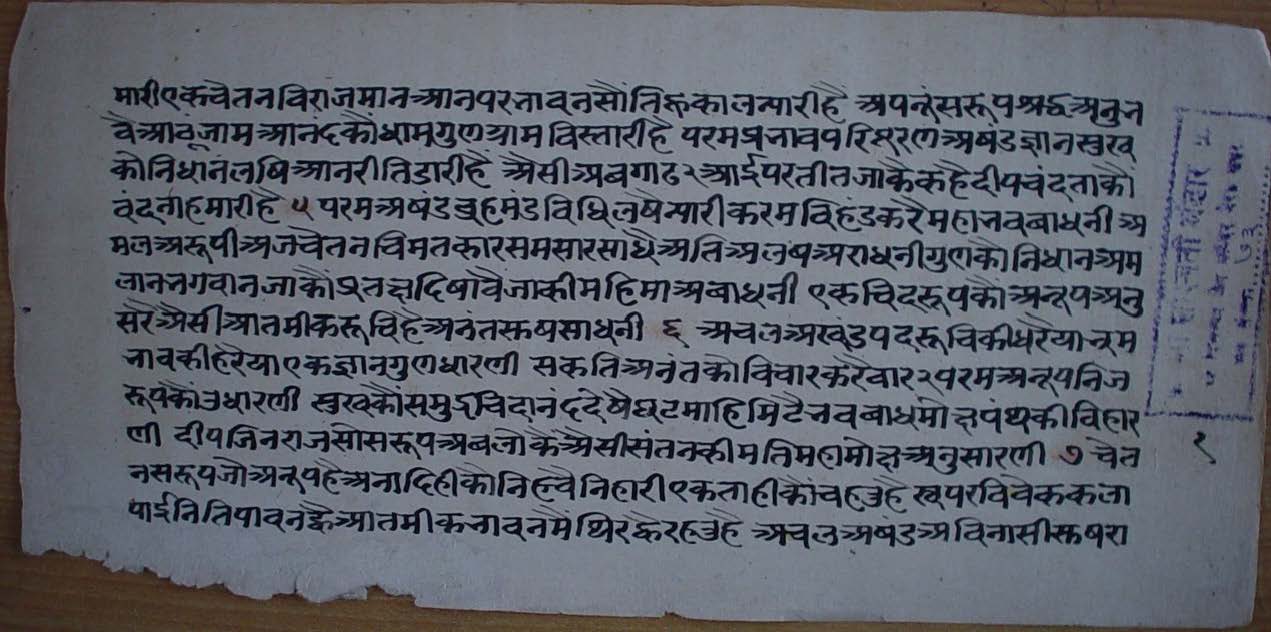 मारी एक चेतन विराजमान आन परभावन सौं तिहूकाल न्यारी है अपनूं सरूप श्रद्ध अनुभ
वै आठूंजाम आनंद कौ धाम गुणग्राम विस्तारी है परम प्रभाव परिपूरण अषंड ज्ञान सुख
को निधान लषि आन रीति डारी है अैसी अवगाढ २ आई परतीत जाकै कहै दीपचंद ताकौं
वंदना हमारी है ५ परम अषंड ब्रहमंड विधि लषै न्यारी करम विहंड करै महा भवबाधनी अ
मल अरूपी अज चेतन चिमतकार समसार साधै अति अलष अराधनी गुणकौ निधान अम
लान भगवान जाकौं प्रतक्ष दिषावै जाकी महिमा अबाधनी एक चिदरूपकौ अनूप अनु
सरै अैसी आतमीक रूचि है अनंत सुष साधनी ६ अचल अखंड पद रूचि की धरैया भ्रम
भाव की हरैया एक ज्ञान गुण धारणी सकति अनंत कौ विचार करै वार २ परम अनूप निज
रूपकौं उधारणी सुखकौ समुद्र चिदानंद देषै घटमाहि मिटै भव बाधमोक्षपंथ की विहार
णी दीप जिनराज सो सरूप अवलोकै अैसी संतन की मति महामोक्ष अनुसारणी ७ चेत
न सरूप जो अनूप है अनादि ही कौ निहचै निहारी एकता ही कौं चहतु है स्वपर विवेक कला
पाई निति पावन ह्वै आतमीक भावनमैं थिर ह्वै रहतु है अचल अषंड अविनासी सुष रा
१